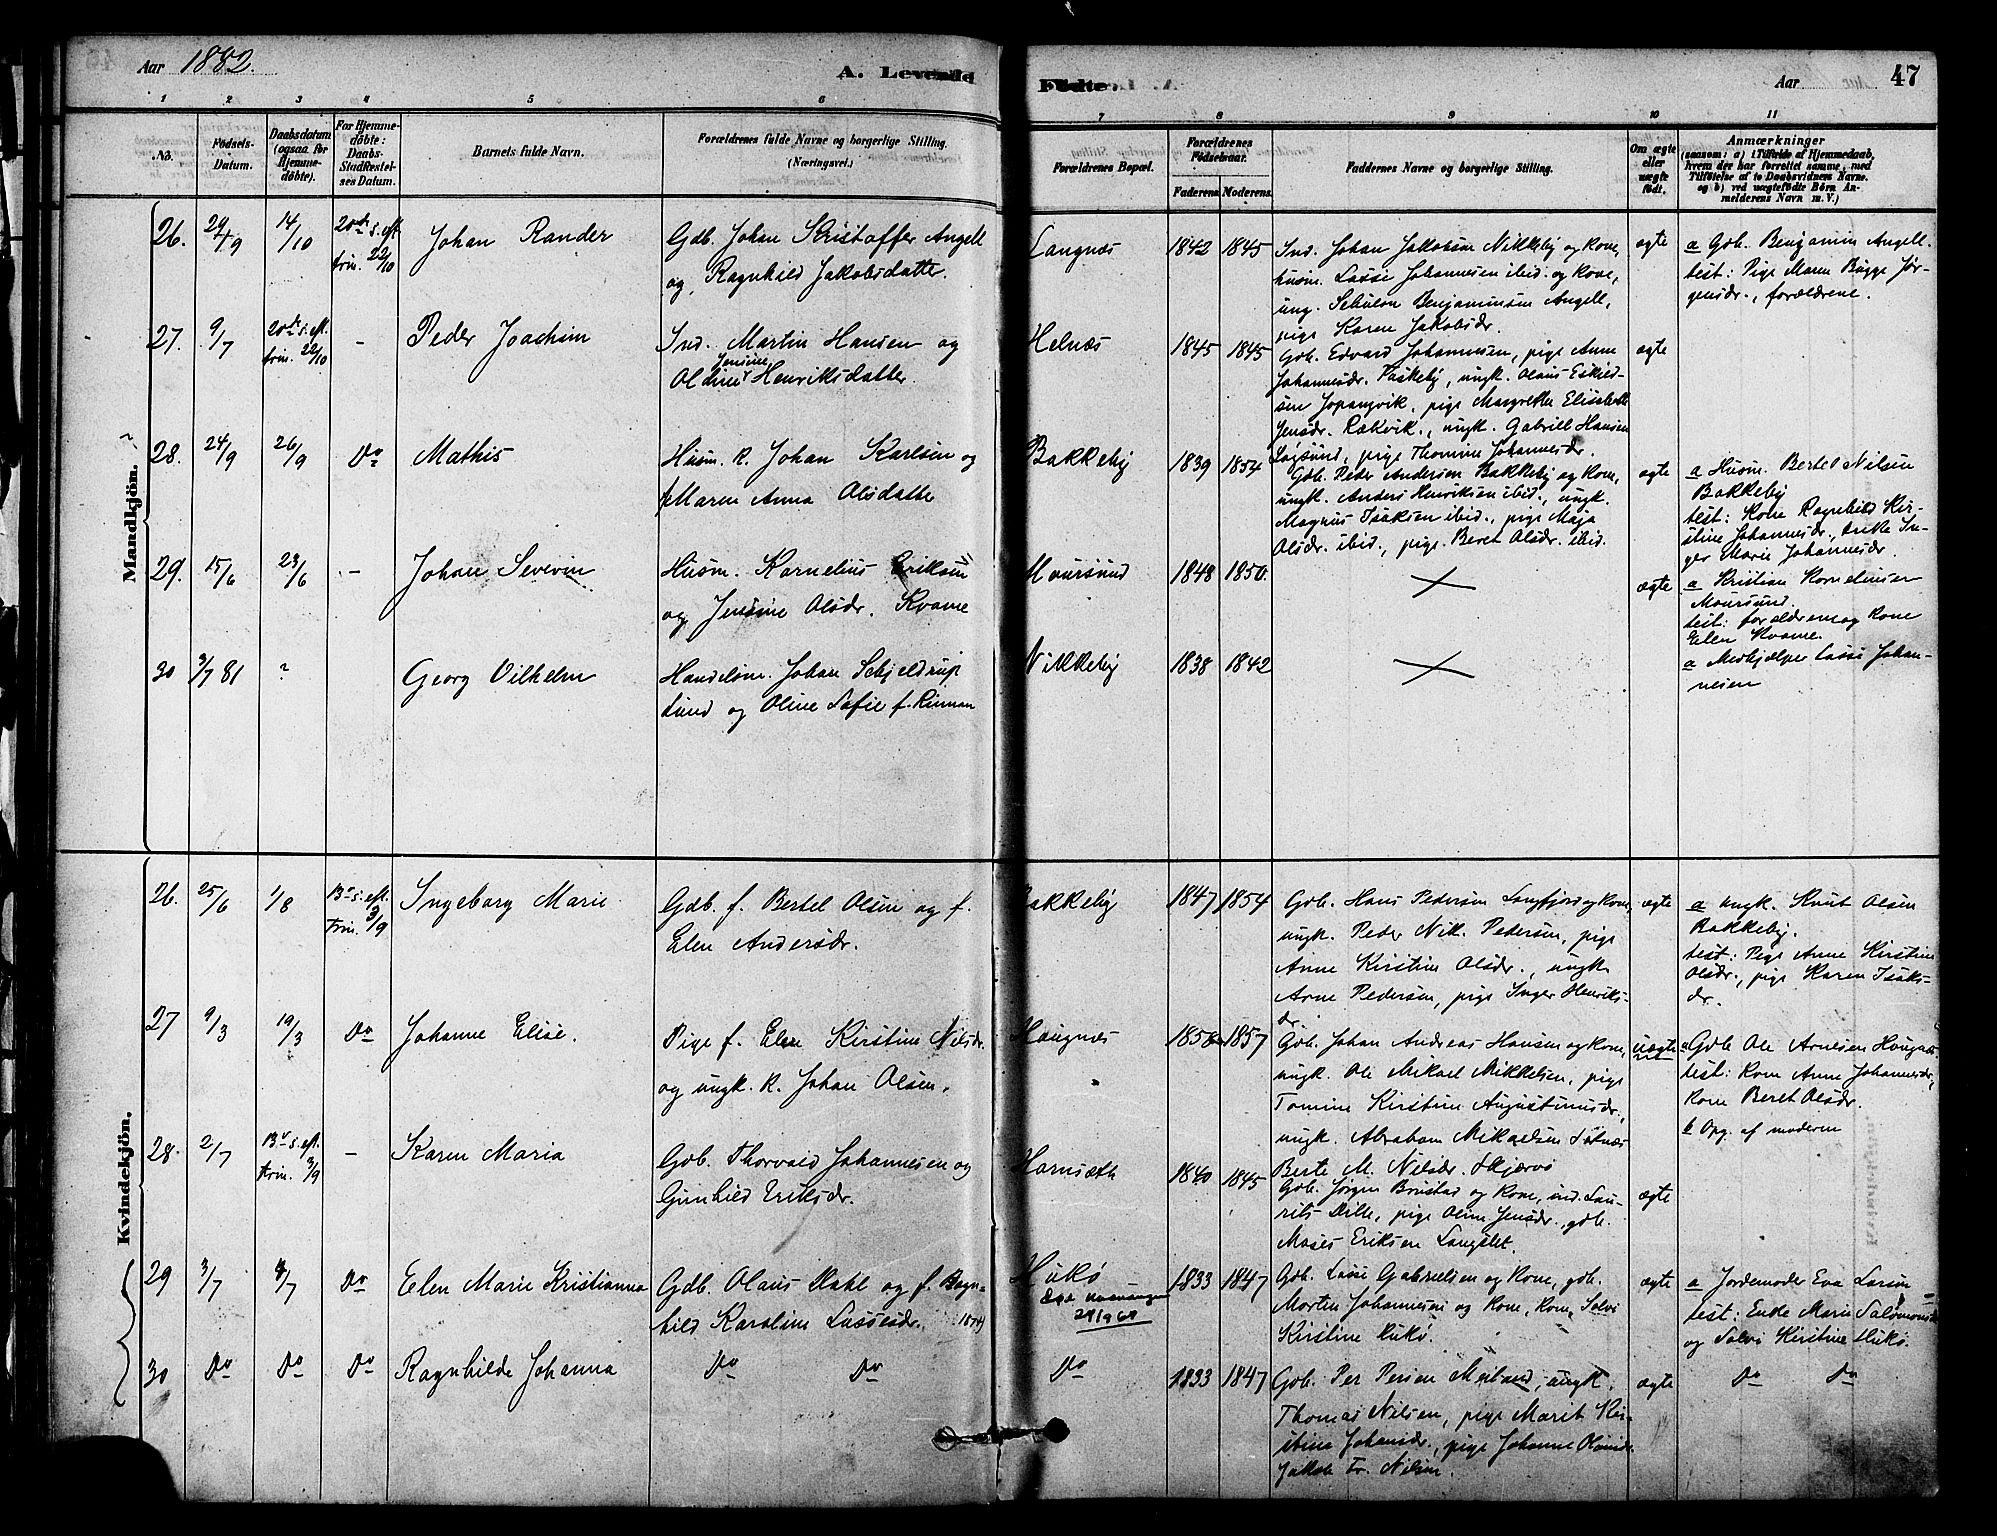 Aar 1882.
A. Levende
Fødte.
Aar
47
1 2 3 4 5 6 7 8 9 10 11
No.
Fødsels-
Datum.
Daabsdatum
(ogsaa for
Hjemme-
døbte).
For Hjemme-
døbte:
Daabs-
Stadfæstel-
ses Datum.
Barnets fulde Navn.
Forældrenes fulde Navne og borgerlige Stilling.
(Næringsvei.)
Forældrenes Bopæl.
Forældrenes
Fødselsaar.
Faderens Moderens.
Faddernes Navne og borgerlige Stilling.
Om ægte
eller
uægte
født.
Anmærkninger
(saasom: a) i Tilfælde af Hjemmedaab,
hvem der har forrettet samme, med
Tilføielse af to Daabsvidners Navne.
og b) ved uægtefødte Børn An-
melderens Navn m. V.)
Mandkjøn.
26. 29/9 14/10 20de s. eft. trin. 22/10
Johan Rander
Gdb. Johan Kristoffer Angell
og Ragnhild Jakobsdatter.
Langnæs 1842 1845
Ind. Johan Jakobsen Nikkeby og kone,
husm. Lasse Johannesen ibid. og kone,
ung. Sebulon Benjaminsen Angell,
pige Karen Jakobsdr.
ægte
a Gdb. Benjamin Angell.
test: Pige Maren Bugge Jør-
gensdr., forældrene.
27. 9/7 20de s. eft. trin. 22/10 -
Peder Joachim
Ind. Martin Hansen og
Jensine
Henriksdatter
Helnæs 1845 1845
Gdb. Edvard Johannesen, pige Anne
Johannesdr. Vaskeby, ungk. Olaus Eskild-
sen Jopangvik, pige Margrethe Elisabeth
Jensdr. Rækvik., ungk. Gabriel Hansen
Løgsund, pige Thomine Johannesdr.
ægte
28. 24/9 26/9 Do
Mathis
Husm. k. Johan Karlsen og
Maren Anna Olsdatter
Bakkeby 1839 1854
Gdb. Peder Andersen Bakkeby og kone,
ungk. Anders Henriksen ibid., ungk.
Magnus Isaksen ibid., pige Maja
Olsdr. ibid., pige. Beret Olsdr. ibid.
ægte
a Husm. Bertel Nilsen
Bakkeby
test: Kone Ragnhild Kir-
stine Johannesdr., enke In-
ger Marie Johannesdr.
29. 15/6 23/6 -
Johan Severin
Husm. Kornelius Eriksen
og Jensine Olsdr. Kvame
Maursund 1848 1850.
ægte
a Kristian Korneliusen
Maursund.
test: forældrene og kone
Elen Kvame.
30 3/7 81 ?
Georg Vilhelm
Handelsm. Johan Schjeldrup
Lund og Oline Sofie f. Rinman
Nikkeby 1838 1842
a Medhjælper Lasse Johan-
nesen
Kvindekjøn.
26. 25/6 1/8 13de s. eft. trin. 3/9
Ingeborg Marie
Gdb. f. Bertel Olsen og f.
Elen Andersdr.
Bakkeby 1847 1854
Gdb. Hans Pedersen Langfjord og kone,
ungk. Peder Nik. Pedersen, pige
Anne Kirstine Olsdr., ungk.
Arne Pedersen, pige Inger Henriks-
dr.
ægte
a ungk. Knut Olsen
Bakkeby.
test: Pige Anne Kirstine
Olsdr., pige Karen Isaks-
dr.
27 9/3 19/3 Do
Johanne Elise.
Pige f. Elen Kirstine Nilsdr.
og ungk. k. Johan Olsen.
Haugnæs 1857
Gdb. Johan Andreas Hansen og kone,
ungk. Ole Mikael Mikkelsen, pige
Tomine Kirstine Augustinusdr.,
ungk. Abraham Mikaelsen
Berte M. Nilsdr. Skjærvø
uægte
a Gdb Ole Arnesen
test: Kone Anne Johannesdr,
kone Beret Olsdr.
b Opg. af moderen
28. 2/7 13de s. eft. trin. 3/9 -
Karen Maria
Gdb. Thorvald Johannesen og
Gunhild Eriksdr.
Hamnsæth 1840 1845
Gdb. Jørgen Brustad og kone, ind. Lau-
rits Dille, pige Oline Jensdr., gdb.
Moses Eriksen Langslet.
ægte
29 3/7 8/7 Do
Elen Marie Kristianna
Gdb. Olaus Dahl og f. Ragn-
hild Karoline Lassesdr.
Hukø
29/1968
1833 1847
Gdb. Lasse Gabrielsen og kone, gdb.
Morten Johannesen og kone, kone Solvi
Kirstine Hukø.
ægte
a Jordemoder Eva Larsen
test: Enke Marie Salomonsdr
og Solvi Kirstine Hukø.
30 Do Do Do
Ragnhilde Johanna
Do Do
Do 1833 1847
Gdb. Per Persen Meiland, ungk.
Thomas Nilsen, pige Marit Kir-
stina Johansdr., pige Johanne
Jakob Tr. Nilsen.
ægte
Do Do